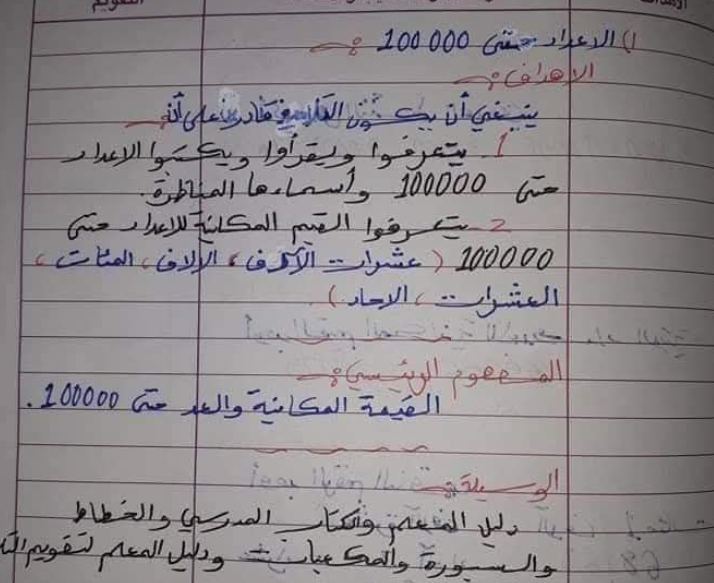 التقويم
1) الاعداد حتى 100000 :-
الاهداف :-
ينبغي أن يكون التلاميذ قادرين على أن :-
1. يتعرفوا ويقرأوا ويكتبوا الاعداد
حتى 100000 وأسماءها المناظرة.
2- يتعرفوا القيم المكانية للاعداد حتى
100000 (عشرات الألاف، الألاف، المئات،
العشرات، الاحاد).
المفهوم الرئيسي :-
القيمة المكانية والعد حتى 100000.
الوسيلة :-
دليل المعلم والكتاب المدرسي والخطاط
والسبورة والمكعبات ودليل المعلم لتقويم